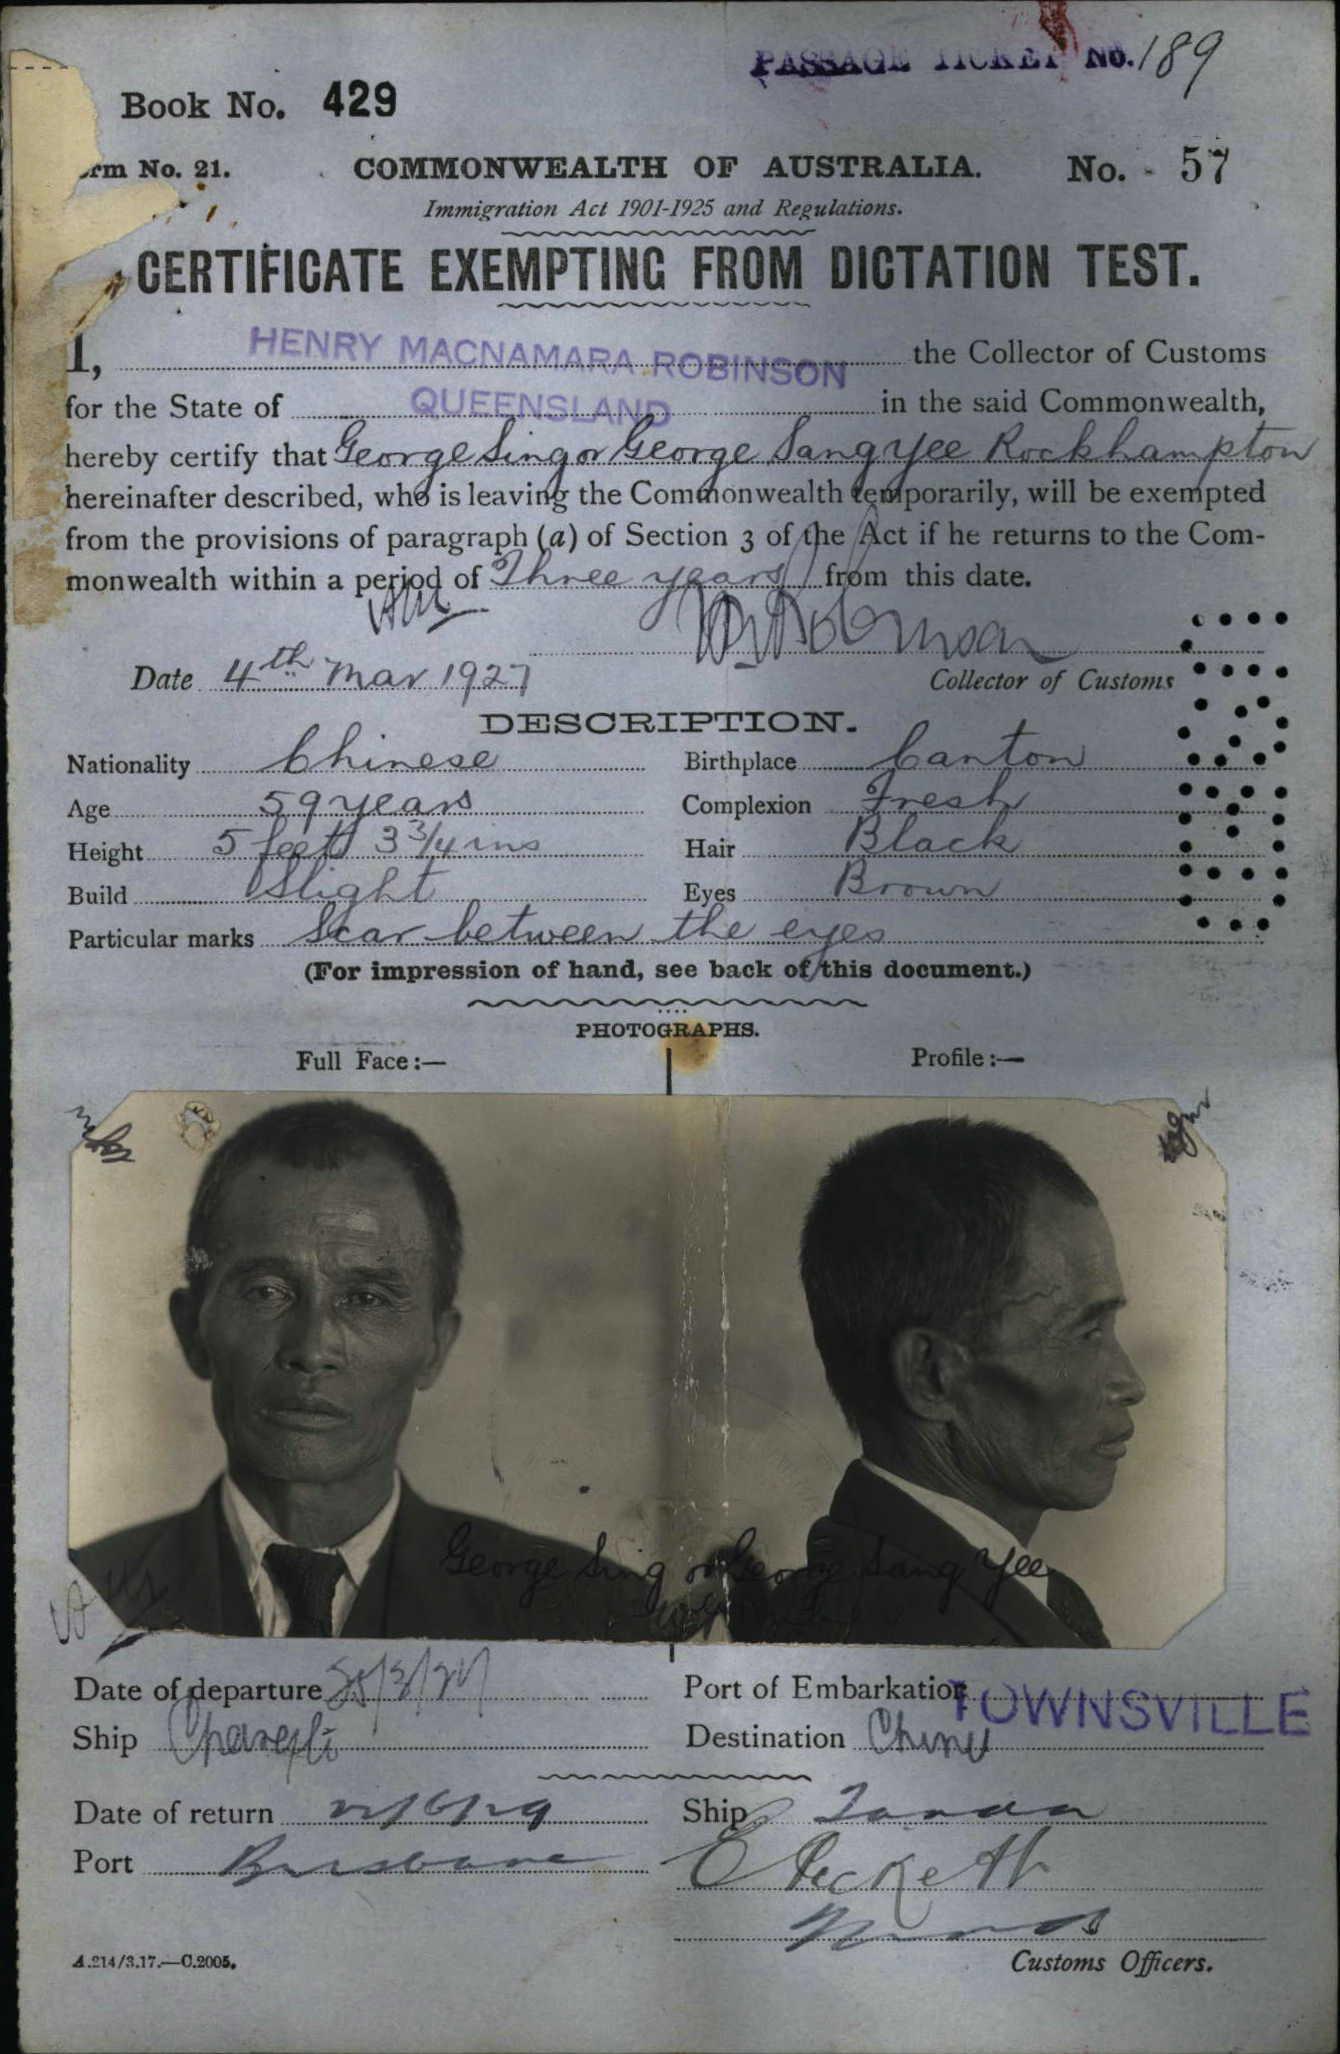 PASSAGE TICKET No. 189
Book No. 429
rm No. 21.
COMMONWEALTH OF AUSTRALIA.
No. 57
Immigration Act 1901-1925 and Regulations.
CERTIFICATE EXEMPTING FROM DICTATION TEST.
I, HENRY MACNAMARA ROBINSON the Collector of Customs
for the State of QUEENSLAND in the said Commonwealth,
hereby certify that George Sing or George Sang Yee Rockhampton
hereinafter described, who is leaving the Commonwealth temporarily, will be exempted
from the provisions of paragraph (a) of Section 3 of the Act if he returns to the Com-
monwealth within a period of Three years from this date.
Date 4th Mar 1927
Collector of Customs
DESCRIPTION.
Nationality Chinese
Birthplace Canton
Age 59 years
Complexion Fresh
Height 5 feet 3 3/4 ins
Hair Black
Build Slight
Eyes Brown
Particular marks Scar between the eyes
(For impression of hand, see back of this document.)
PHOTOGRAPHS.
Full Face:—
Profile:—
George Sing or George Sang Yee
Date of departure 25/3/27
Port of Embarkation TOWNSVILLE
Ship
Destination China
Date of return
Ship Tanda
Port Brisbane
Customs Officers.
A.214/3.17.—C.2005.